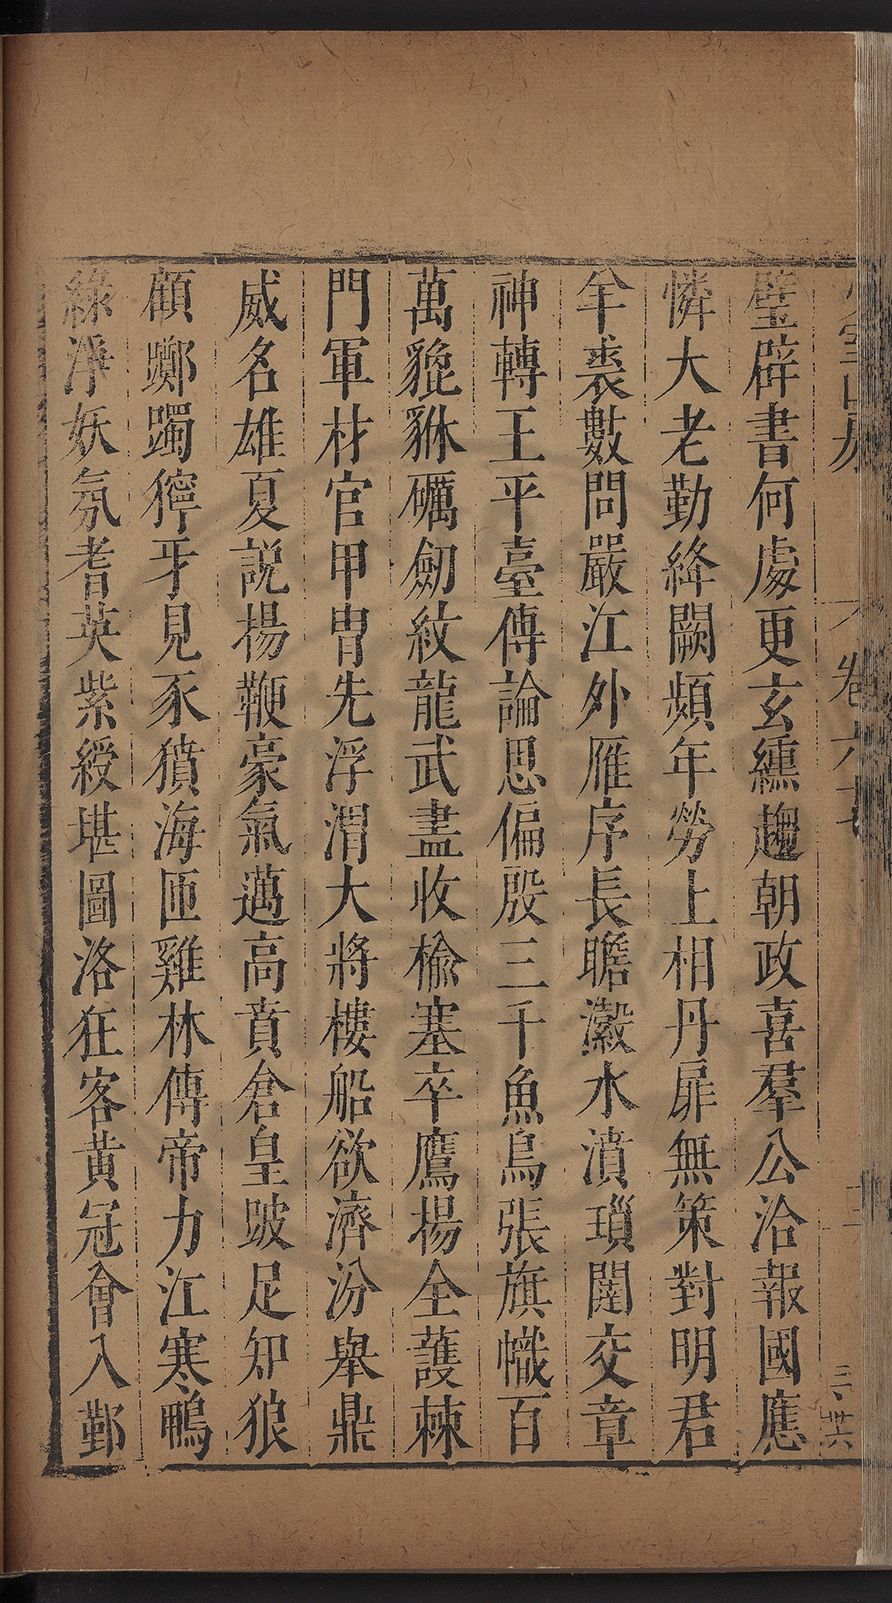 卷六十
璧辟書何處更玄纁趨朝政喜羣公洽報國應
憐大老勤絳闕頻年勞上相丹扉無策對明君
羊裘數問嚴江外雁序長瞻瀫水濆瑣闥交章
神轉王平臺傳論思偏殷三千魚鳥張旗幟百
萬貔貅礪劒紋龍武盡收榆塞卒鷹揚全護棘
門軍材官甲冑先浮渭大將樓船欲濟汾舉鼎
威名雄夏說揚鞭豪氣邁高賁倉皇跛足知狼
顧躑躅獰牙見豕豶海匝雞林傳帝力江寒鴨
綠淨妖氛耆英紫綬堪圖洛狂客黄冠會入鄞